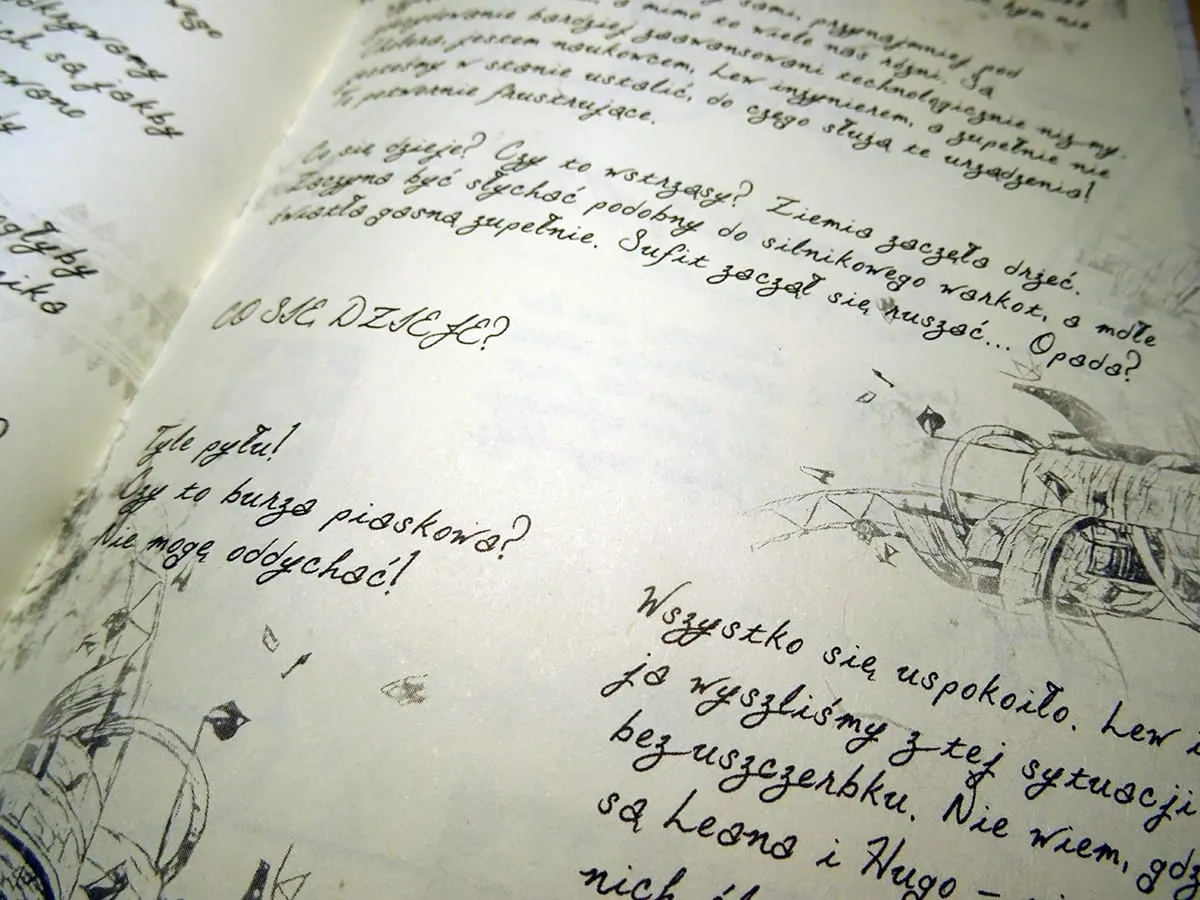 ch są jakby
sami, przynajmniej pod
a mimo to wiele nas różni. Są
bardziej zaawansowani technologicznie niż my.
jestem naukowcem, Lew inżynierem, a zupełnie nie
jesteśmy w stanie ustalić, do czego służą te urządzenia!
To potwornie frustrujące.
Co się dzieje? Czy to wstrząsy? Ziemia zaczęła drżeć.
Zaczyna być słychać podobny do silnikowego warkot, a mdłe
światła gasną zupełnie. Sufit zaczął się ruszać... Opada?
CO SIĘ DZIEJE?
Tyle pyłu!
Czy to burza piaskowa?
Nie mogę oddychać!
Wszystko się uspokoiło. Lew i
ja wyszliśmy z tej sytuacji
bez uszczerbku. Nie wiem, gdz
są Leana i Hugo –
nich